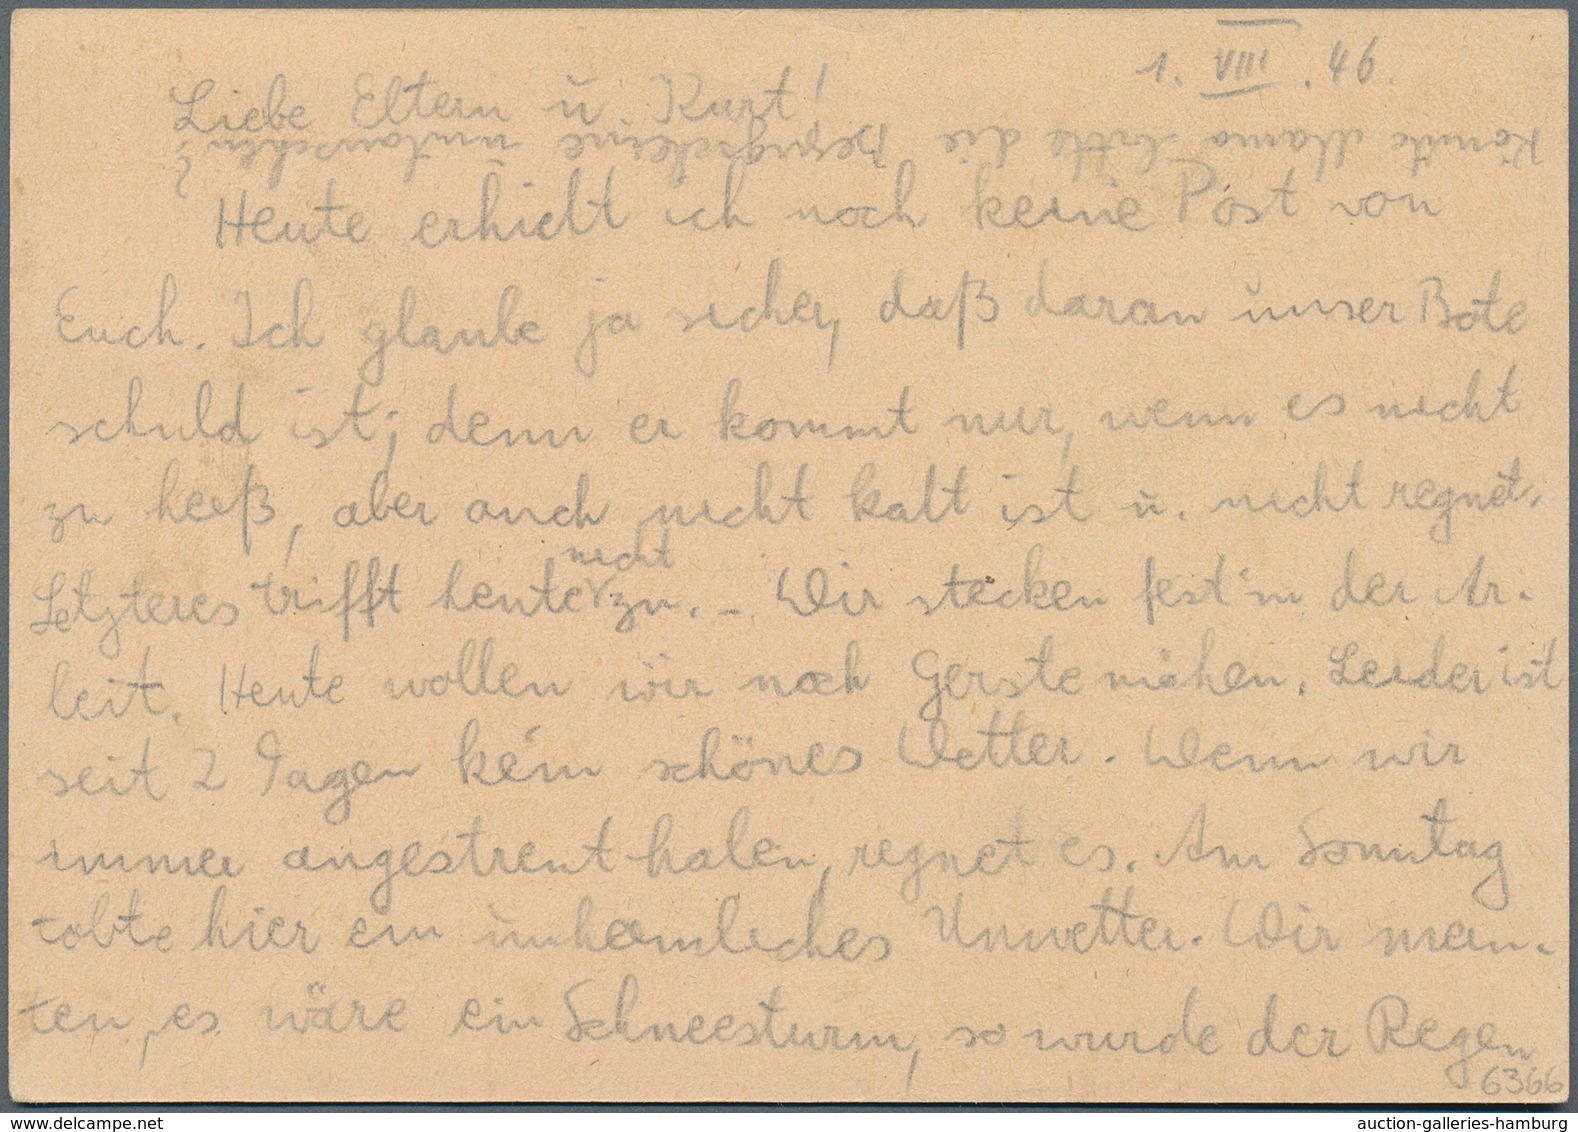 1. VIII. 46.
Liebe Eltern u Kurt!
Könnte Mama bitte die Bezugscheine umtauschen?
Heute erhielt ich noch keine Post von
Euch. Ich glaube ja sicher, daß daran unser Bote
schuld ist; denn er kommt nur, wenn es nicht
zu heiß, aber auch nicht kalt ist u. nicht regnet.
Letzteres trifft heute nicht zu. – Wir stecken fest in der Ar-
beit. Heute wollen wir noch Gerste mähen. Leider ist
seit 2 Tagen kein schönes Wetter. Wenn wir
immer angestrent haben, regnet es. Am Sonntag
tobte hier ein unheimliches Unwetter. Wir mein-
ten, es wäre ein Schneesturm, so wurde der Regen
6366
auction-galleries-hamburg